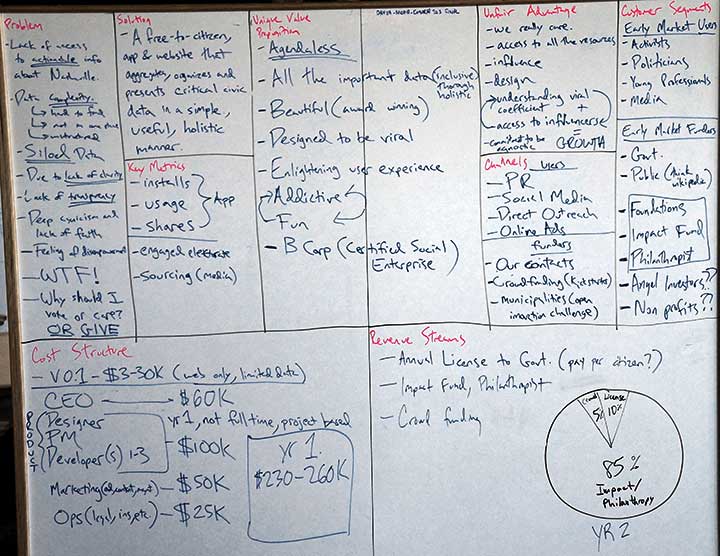 Problem
- Lack of access
to actionable info
about Nashville.
- Data Complexity.
hard to find
not in one place
unstructured
- Siloed Data
- Due to lack of clarity
- Lack of transparency
- Deep cynicism and
lack of faith
- Feeling of disempowered
- WTF!
- Why should I
vote or care?
OR GIVE
Solution
- A free-to-citizen,
app & website that
aggregates, organizes and
presents critical civic
data in a simple,
useful, holistic
manner.
Key Metrics
- installs
- usage
- shares
App
- engaged electorate
- sourcing (media)
Unique Value
Proposition
- Agendaless
- All the important data (inclusive)
thorough
holistic
- Beautiful (award winning)
- Designed to be viral
- Enlightening user experience
Addictive
Fun
- B Corp (Certified Social
Enterprise)
Unfair Advantage
- we really care.
- access to all the resources
- influence
- design
- understanding viral
coefficient +
- access to influencers
=
- commitment to be
agnostic
GROWTH
Channels
users
- PR
- Social Media
- Direct Outreach
- Online Ads
funders
- Our contacts
- Crowdfunding (Kickstarter)
- Municipalities (open
innovation challenge)
Customer Segments
Early Market Users
- Activists
- Politicians
- Young Professionals
- Media
Early Market Funders
- Govt.
- Public (think
wikipedia)
- Foundations
- Impact Fund
- Philanthropist
- Angel Investors??
- Non profits??
Cost Structure
- V0.1 - $3-30K (web only, limited data)
CEO - $60K
PRODUCT
Designer
PM
Developer(s) 1-3
yr 1, not full time, project based
$100K
Marketing - $50K
Ops (legal, ins, etc.) - $25K
yr 1.
$230-260K
Revenue Streams
- Annual License to Govt. (pay per citizen?)
- Impact Fund, Philanthropist
- Crowd funding
Crowd
5%
License
10%
85%
Impact/
Philanthropy
YR 2